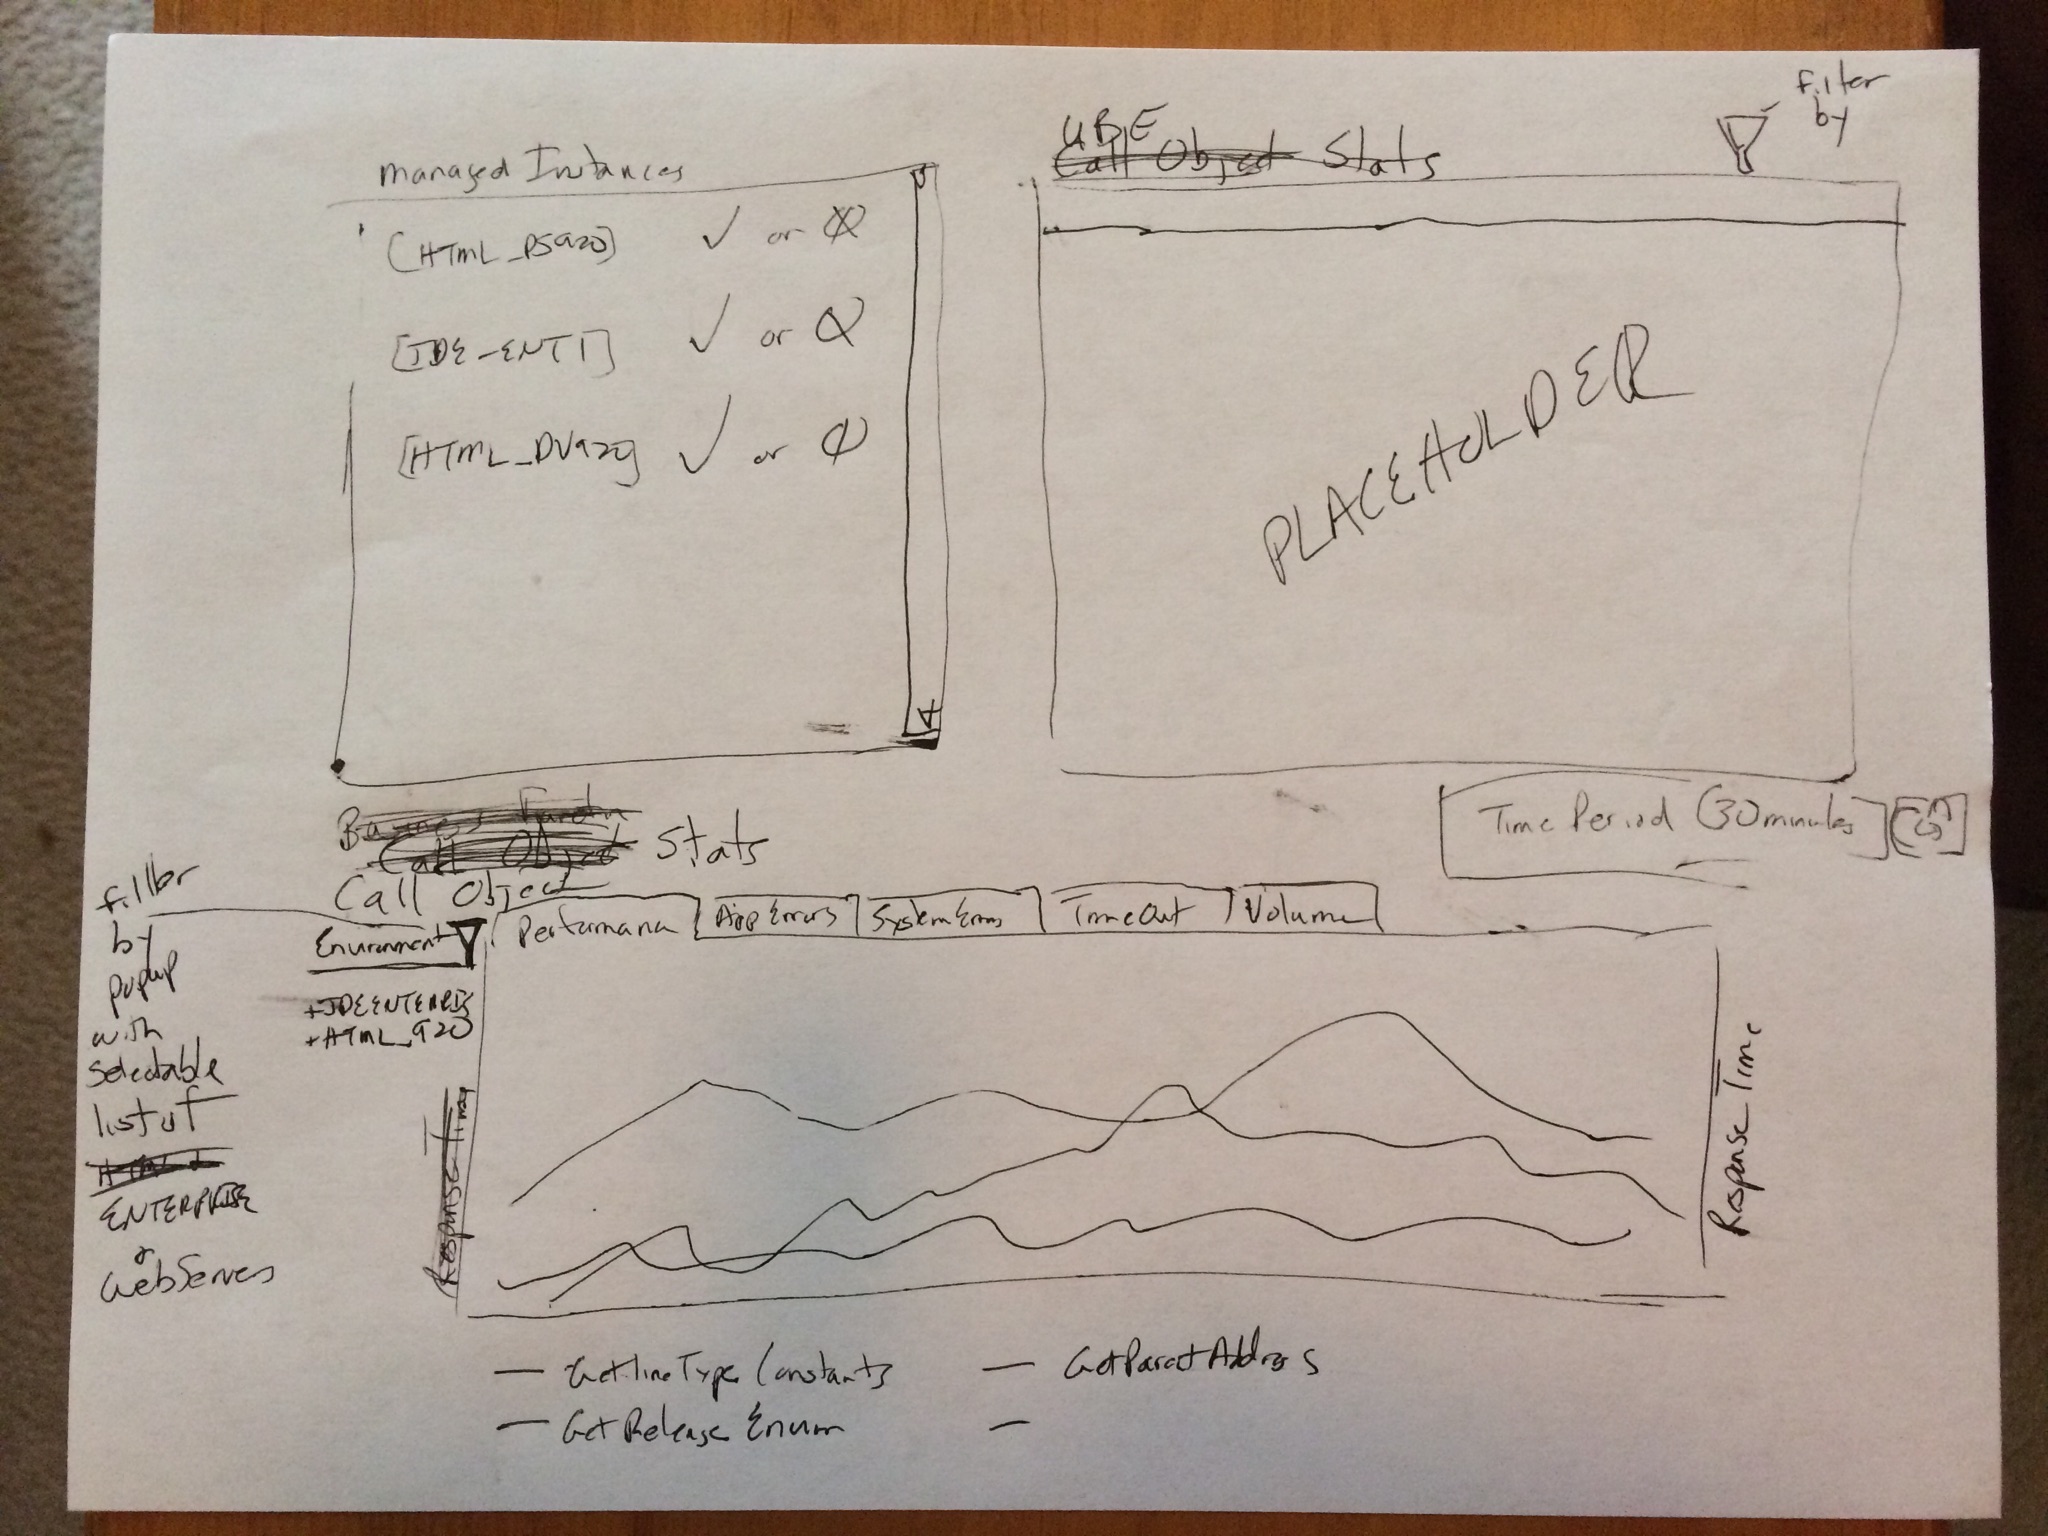 Managed Instances
[HTML_PS920] ✓ or
[JDE-ENT1] ✓ or
[HTML_DV920] ✓ or
UBE
Call Object Stats
filter
by
PLACEHOLDER
Time Period (30minutes)
Call Object Stats
Call Object
filter
by
popup
with
selectable
list of
ENTERPRISE
or
WebServers
Environment
+HTML_920
Performance
App Errors
System Errors
TimeOut
Volume
Response Time
Response Time
— GetLineTypeConstants
— GetParentAddress
— GetReleaseEnum
—